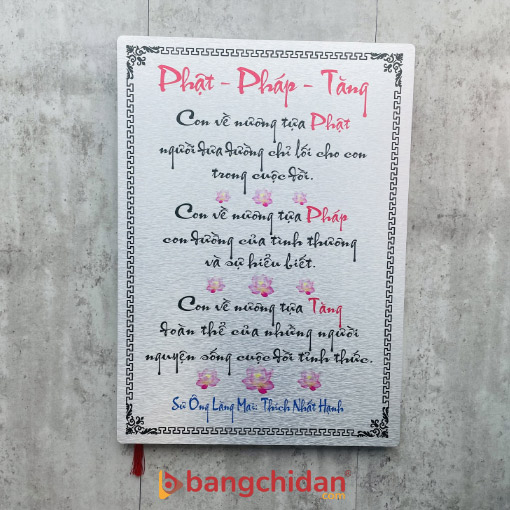 Phật - Pháp - Tăng
Con về nương tựa Phật
người đưa đường chỉ lối cho con
trong cuộc đời.
Con về nương tựa Pháp
con đường của tình thương
và sự hiểu biết.
Con về nương tựa Tăng
đoàn thể của những người
nguyện sống cuộc đời tỉnh thức.
Sư Ông Làng Mai: Thích Nhất Hạnh
bangchidan®
.com